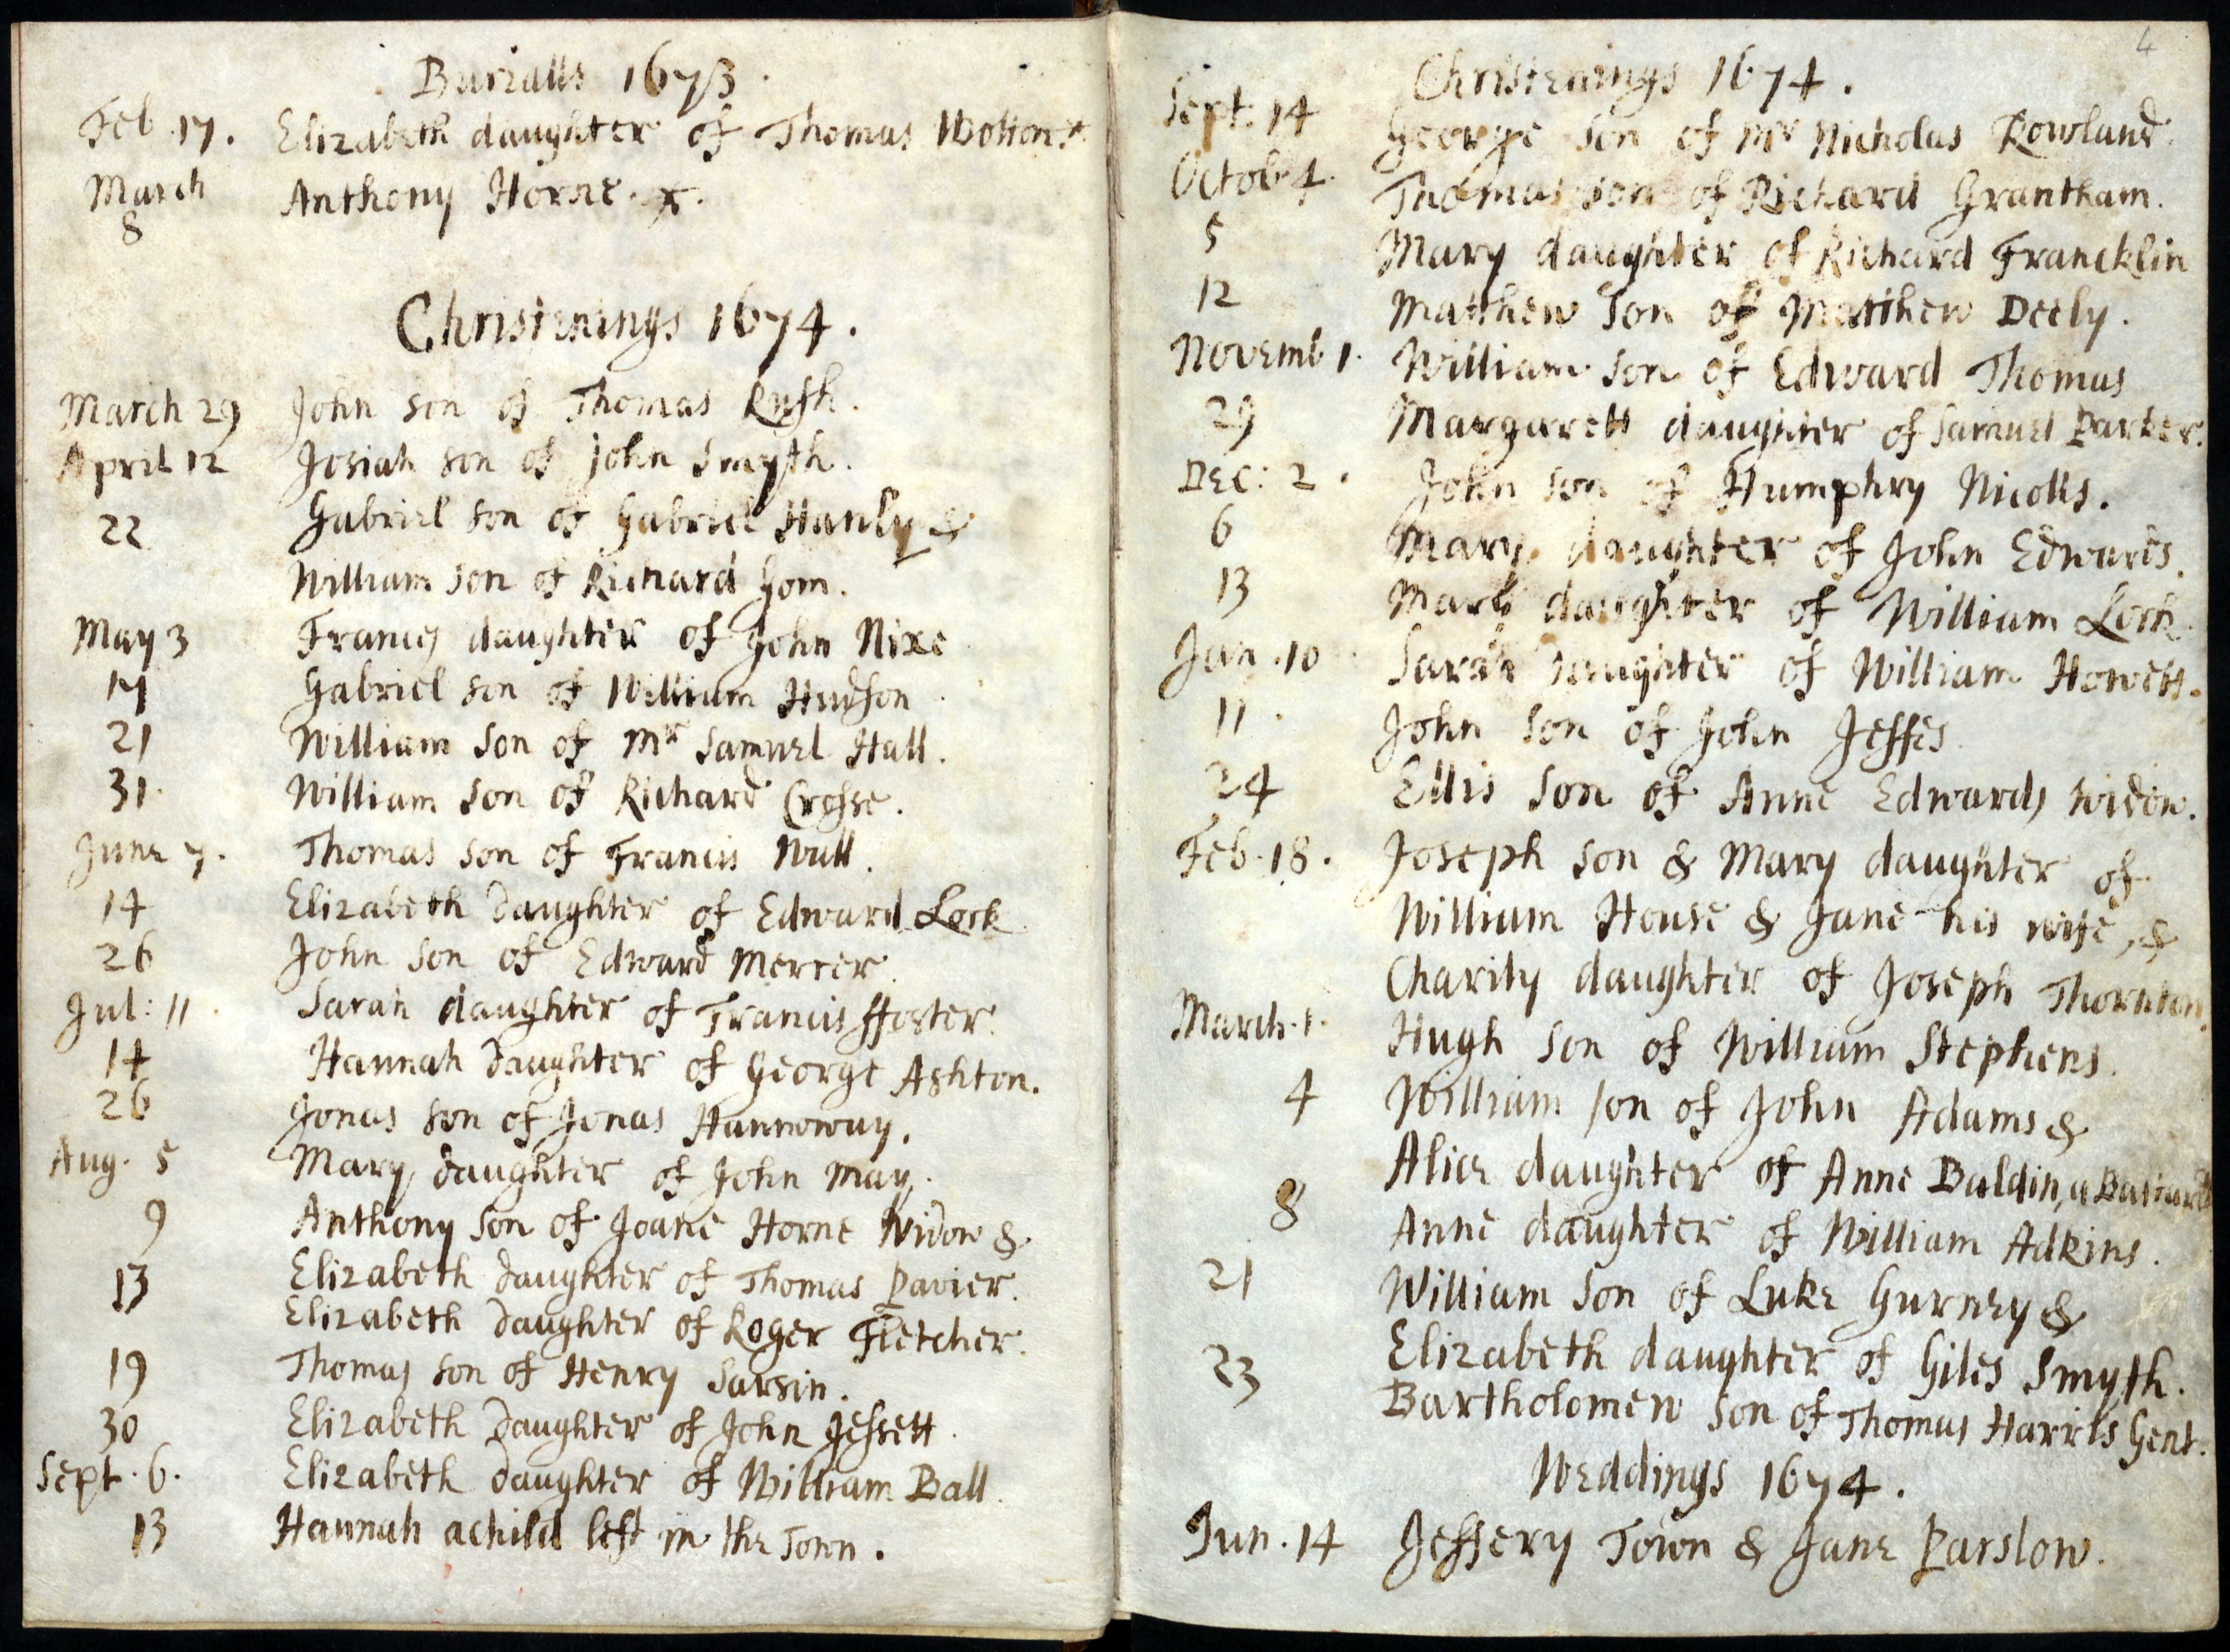 Burialls 1673.
Feb. 17. Elizabeth daughter of Thomas Wotton x.
March Anthony Horne. x.
8
Christenings 1674.
March 29 John son of Thomas Rush.
April 12 Josiah son of John Smyth.
22 Gabriel son of Gabriel Hanly &
William son of Richard Gom.
May 3 Frances daughter of John Nixe
17 Gabriel son of William Hudson
21 William son of Mr Samuel Hall.
31. William son of Richard Crosse.
June 7. Thomas son of Francis Wall.
14 Elizabeth daughter of Edward Lock
26 John son of Edward Mercer.
Jul: 11. Sarah daughter of Francis ffoster.
14 Hannah daughter of George Ashton.
26 Jonas son of Jonas Hannoway.
Aug. 5 Mary daughter of John May.
9 Anthony son of Joane Horne Widow &
Elizabeth daughter of Thomas Pavier.
13 Elizabeth daughter of Roger Fletcher.
19 Thomas son of Henry Sarsin.
30 Elizabeth daughter of John Jessett.
Sept. 6. Elizabeth daughter of William Ball.
13 Hannah a child left in the Town.
4
Christenings 1674.
Sept. 14 George son of Mr Nicholas Rowland.
Octob. 4. Thomas son of Richard Grantham.
5 Mary daughter of Richard Francklin
12 Matthew son of Matthew Deely.
Novemb 1. William son of Edward Thomas
29 Margarett daughter of Samuel Parker.
Dec: 2. John son of Humphry Nicolls.
6 Mary daughter of John Edwards.
13 Mary daughter of William Lock.
Jan. 10 Sarah daughter of William Howett.
11. John son of John Jeffes
24 Ellis son of Anne Edwards widow.
Feb. 18. Joseph son & Mary daughter of
William House & Jane his wife, &
Charity daughter of Joseph Thornton.
March. 1. Hugh son of William Stephens.
4 William son of John Adams &
Alice daughter of Anne Baldin, a Bastard
8 Anne daughter of William Adkins.
21 William son of Luke Gurney &
Elizabeth daughter of Giles Smyth.
23 Bartholomew son of Thomas Harris Gent.
Weddings 1674.
Jun. 14 Jeffery Town & Jane Parslow.